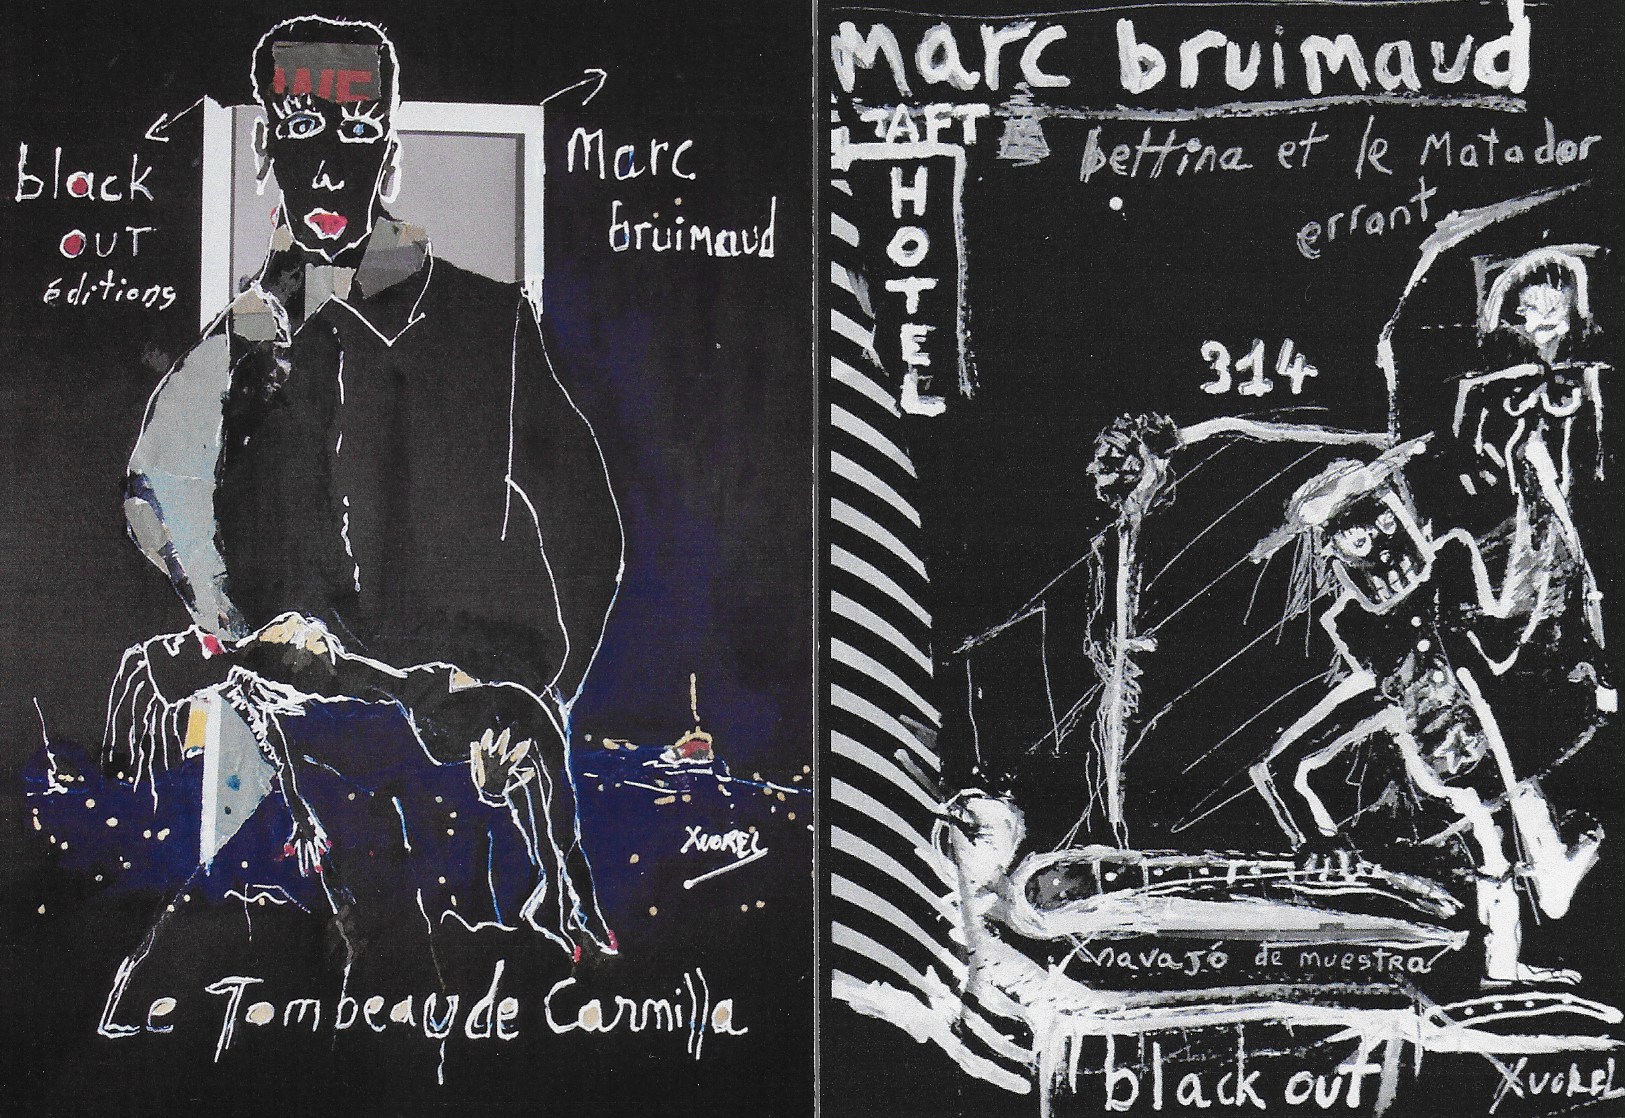 WE
black
out
éditions
Marc
bruimaud
XUOREL
Le Tombeau de Carmilla
marc bruimaud
TAFT
HOTEL
bettina et le Matador
errant
314
navajó de muestra
black out
XUOREL